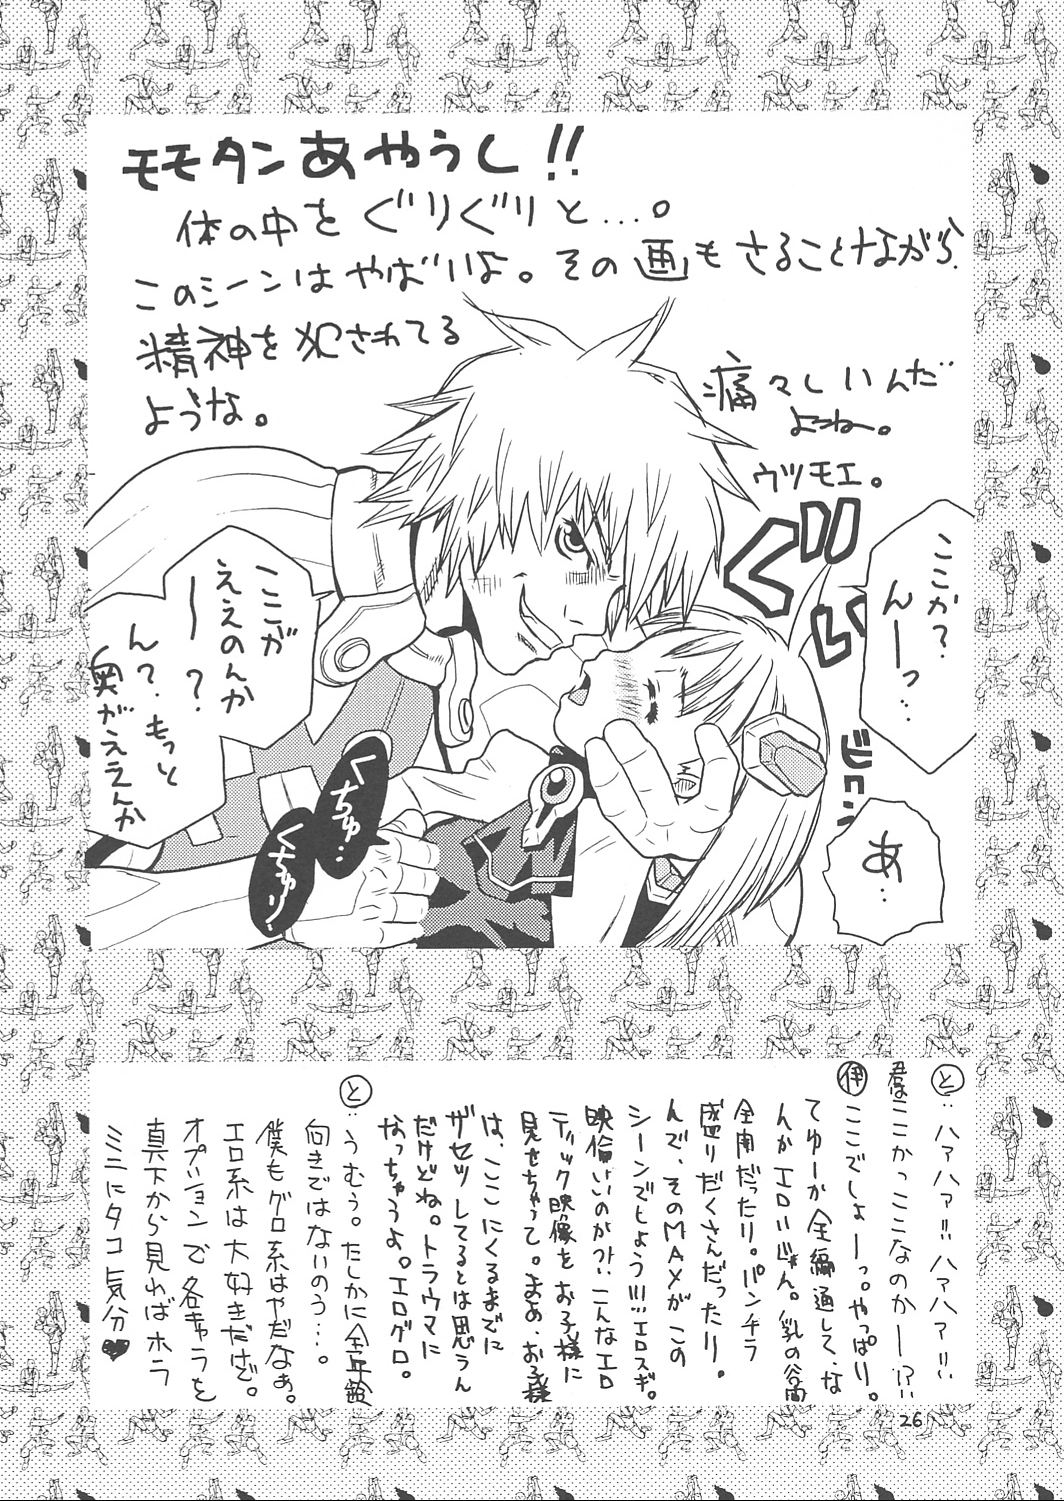 モモタンあやうし!!
体の中をぐりぐりと…。
このシーンはやばいよ。その画もさることながら、
精神を犯されてる
ような。
痛々しいんだ
よねー。
ウツモエ。
ぐぃ
ここか?
んーっ‥
ここが
ええのんか
ー?
ん?もっと
奥がええんか
くちゅ‥
くちゅり‥
ビロロ‥
あ‥
と‥ハァハァ!!ハァハァ!!
君はここかっここなのかー!?
伊 ここでしょーっ。やっぱり。
てゆーか全編通して、な
んかエロいじゃん。乳の谷間
全開だったり。パンチラ
盛りだくさんだったり。
んで、そのMAXがこの
シーンでしょう!!!エロスギ。
映倫いいのか?!こんなエロ
ティック映像をお子様に
見せちゃって。まぁ、お子様
は、ここにくるまでに
ザセツしてるとは思うん
だけどね。トラウマに
なっちゃうよ。エログロ。
と‥うむぅ。たしかに全年齢
向きではないのう…。
僕もグロ系はやだなぁ。
エロ系は大好きだけど。
オプションで各キャラを
真下から見ればホラ
ミニにタコ気分♥
26